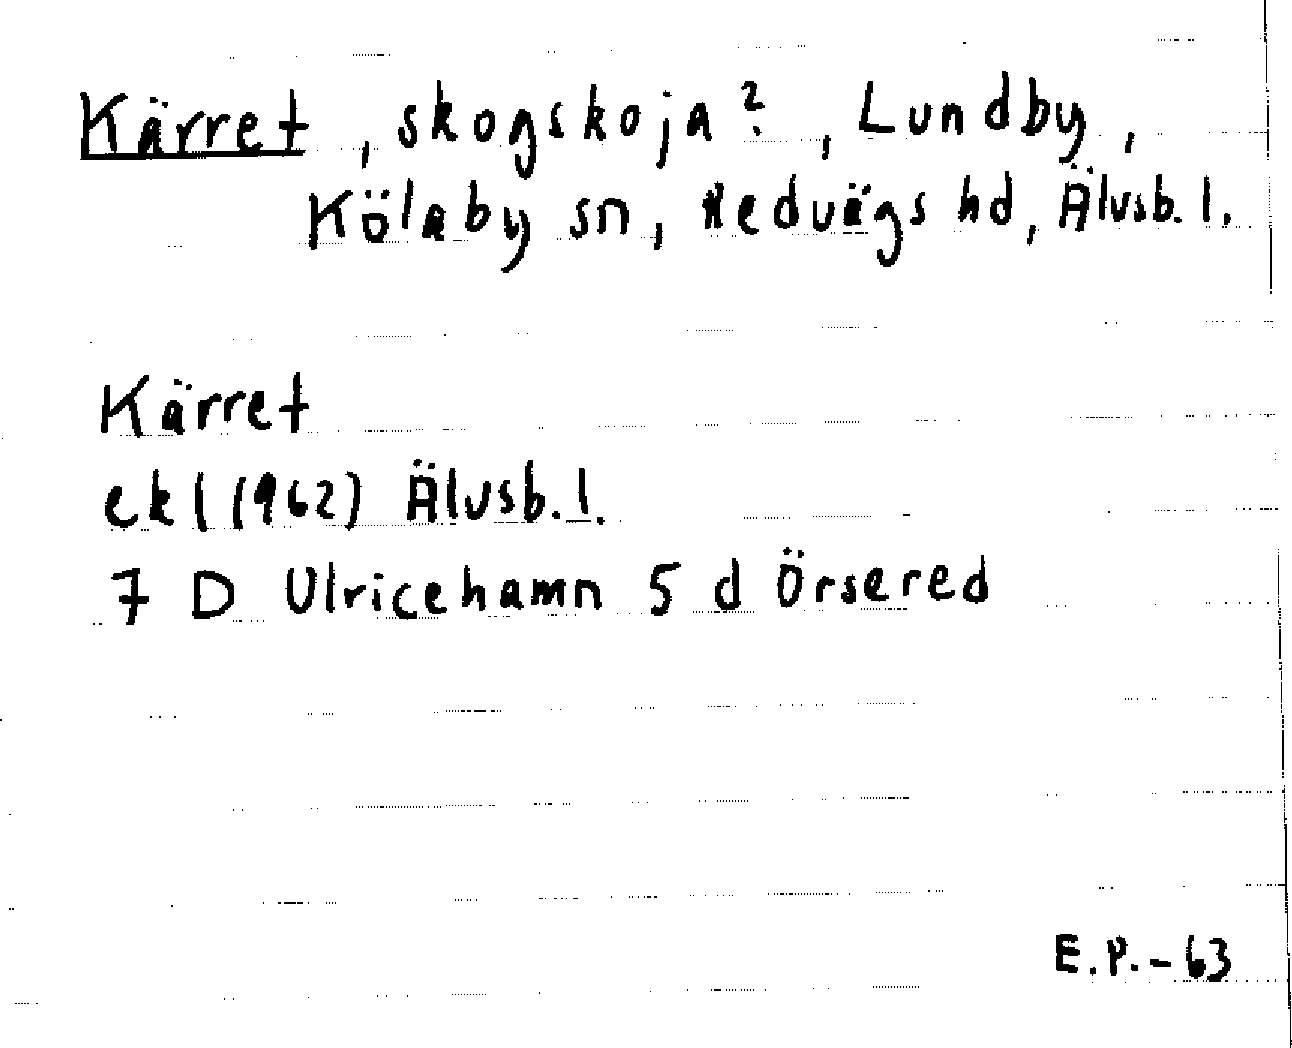 Kärret, skogskoja?, Lundby,
Kölaby sn, Redvägs hd, Älvsb. l.
Kärret
ekl (1962) Älvsb. l.
7 D Ulricehamn 5 d Örsered
E.P. - 63